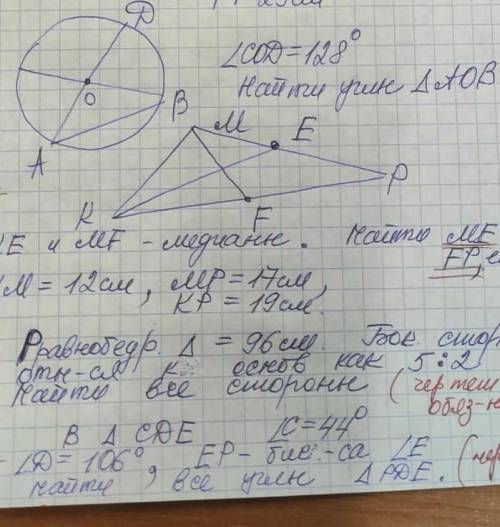 D
∠COD = 128°
Найти углы ΔAOB
O
B
A
M
E
P
K
F
KE и MF - медианы. Найти ME
FP, е
KM = 12см, MP = 17см,
KP = 19см.
Pравнобедр. Δ = 96см. Бок. стор
отн-ся к основ как 5:2
Найти все стороны (чертеж
обяз-н
В Δ CDE ∠C = 44°
∠D = 106°, EP - бис.-са ∠E
найти все углы ΔPDE. (чер